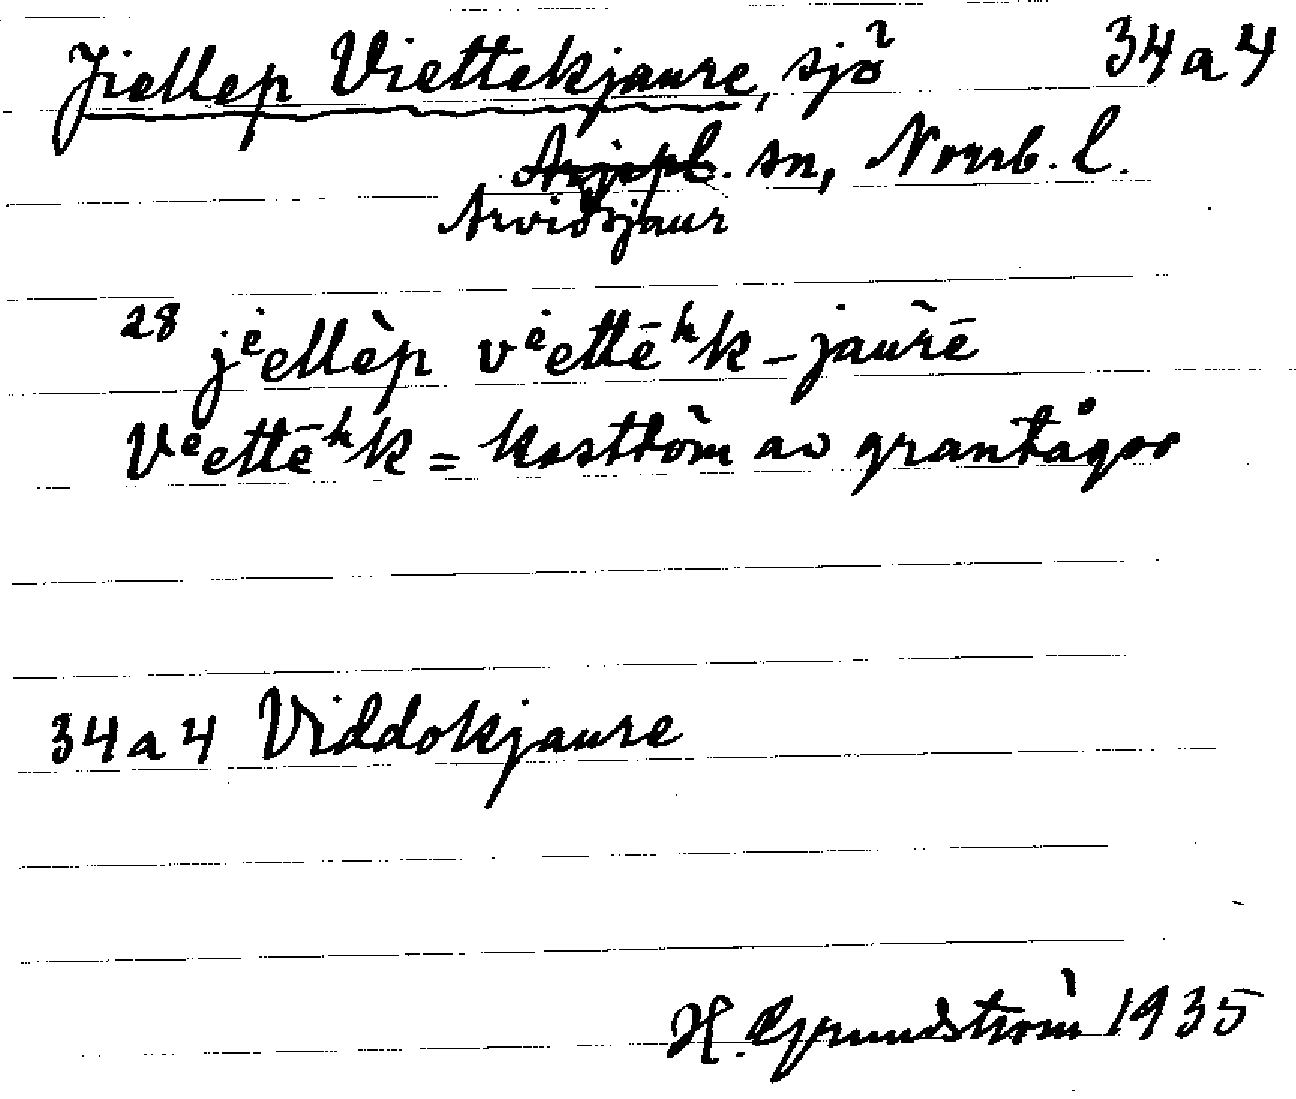 Jiellep Viettekjaure, sjö 34a4
Arjepl. sn, Norrb. l.
Arvidsjaur
28 jėellèp vėettēʰk-jaùrē
Vėettēʰk = kasttöm av grantågor
34a4 Viddokjaure
H. Grundström 1935